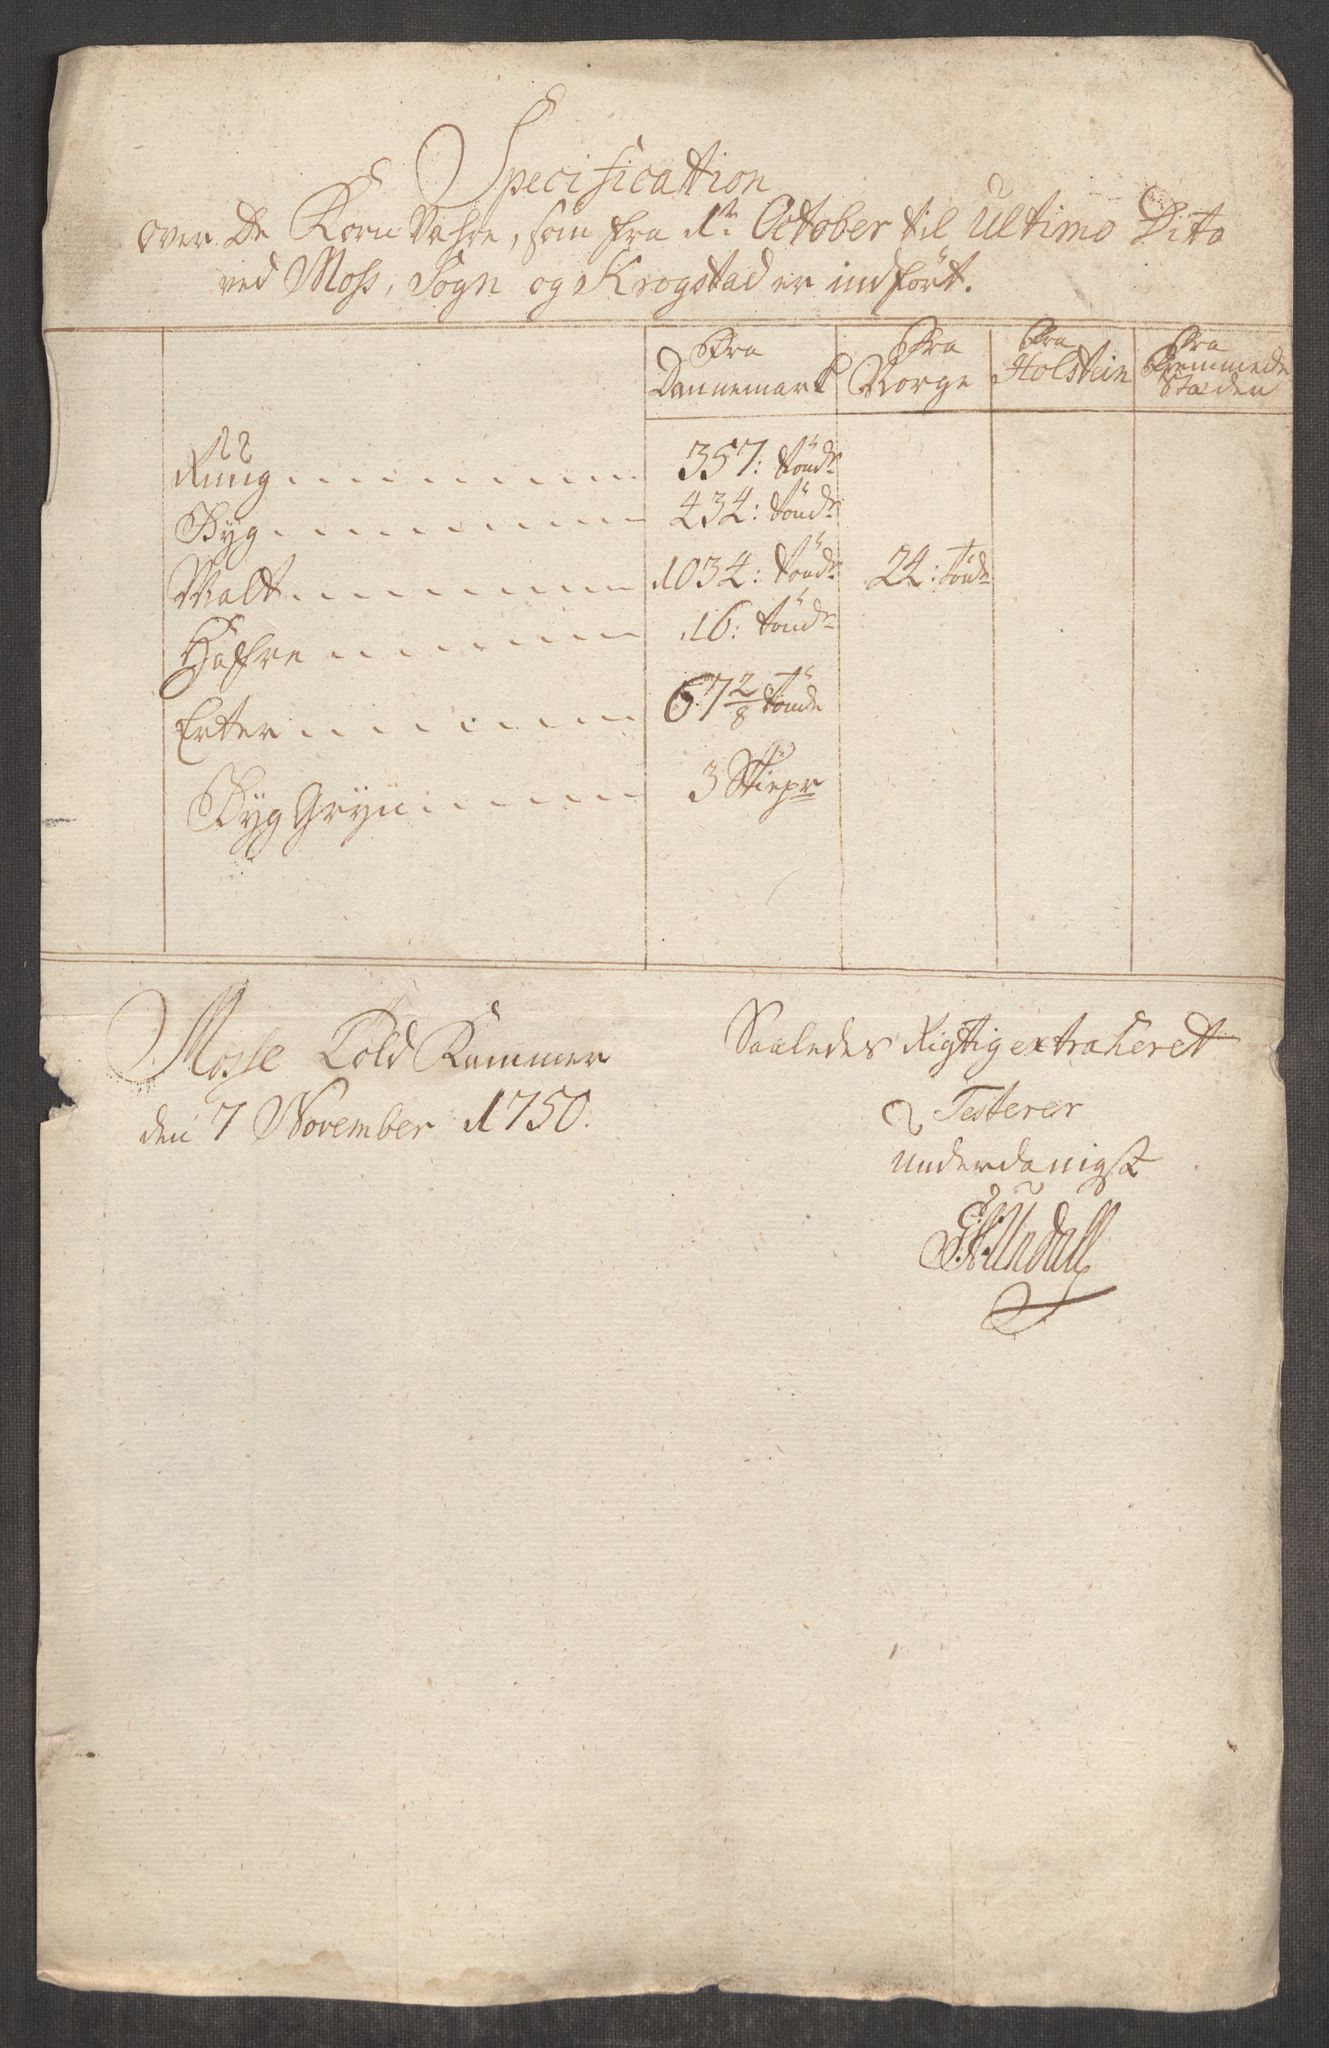 Specification
over De Korn Vahre, som fra 1te October til Ultimo Dito
ved Moss, Sogn og Krogstad er indført.
Fra Dannemark Fra Norge Fra Holstein Fra Fremmede Stæder
Ruug 357: tönd
Byg 434: tönd
Malt 1034: tönd 24: tönd
Hafre 16: tönd
Erter 67 2/8 tönde
Byg Gryn 3 Skiepr
Mosse Told Kammer
den 7 November 1750.
Saaledes Rigtig extraheret
Testerer
underdanigst